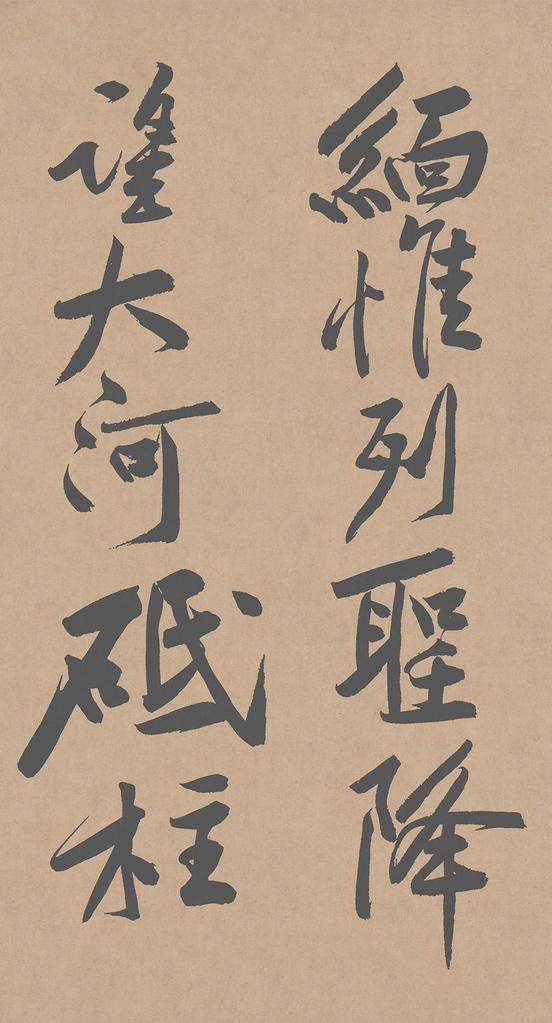 緬惟列聖降
望大河砥柱